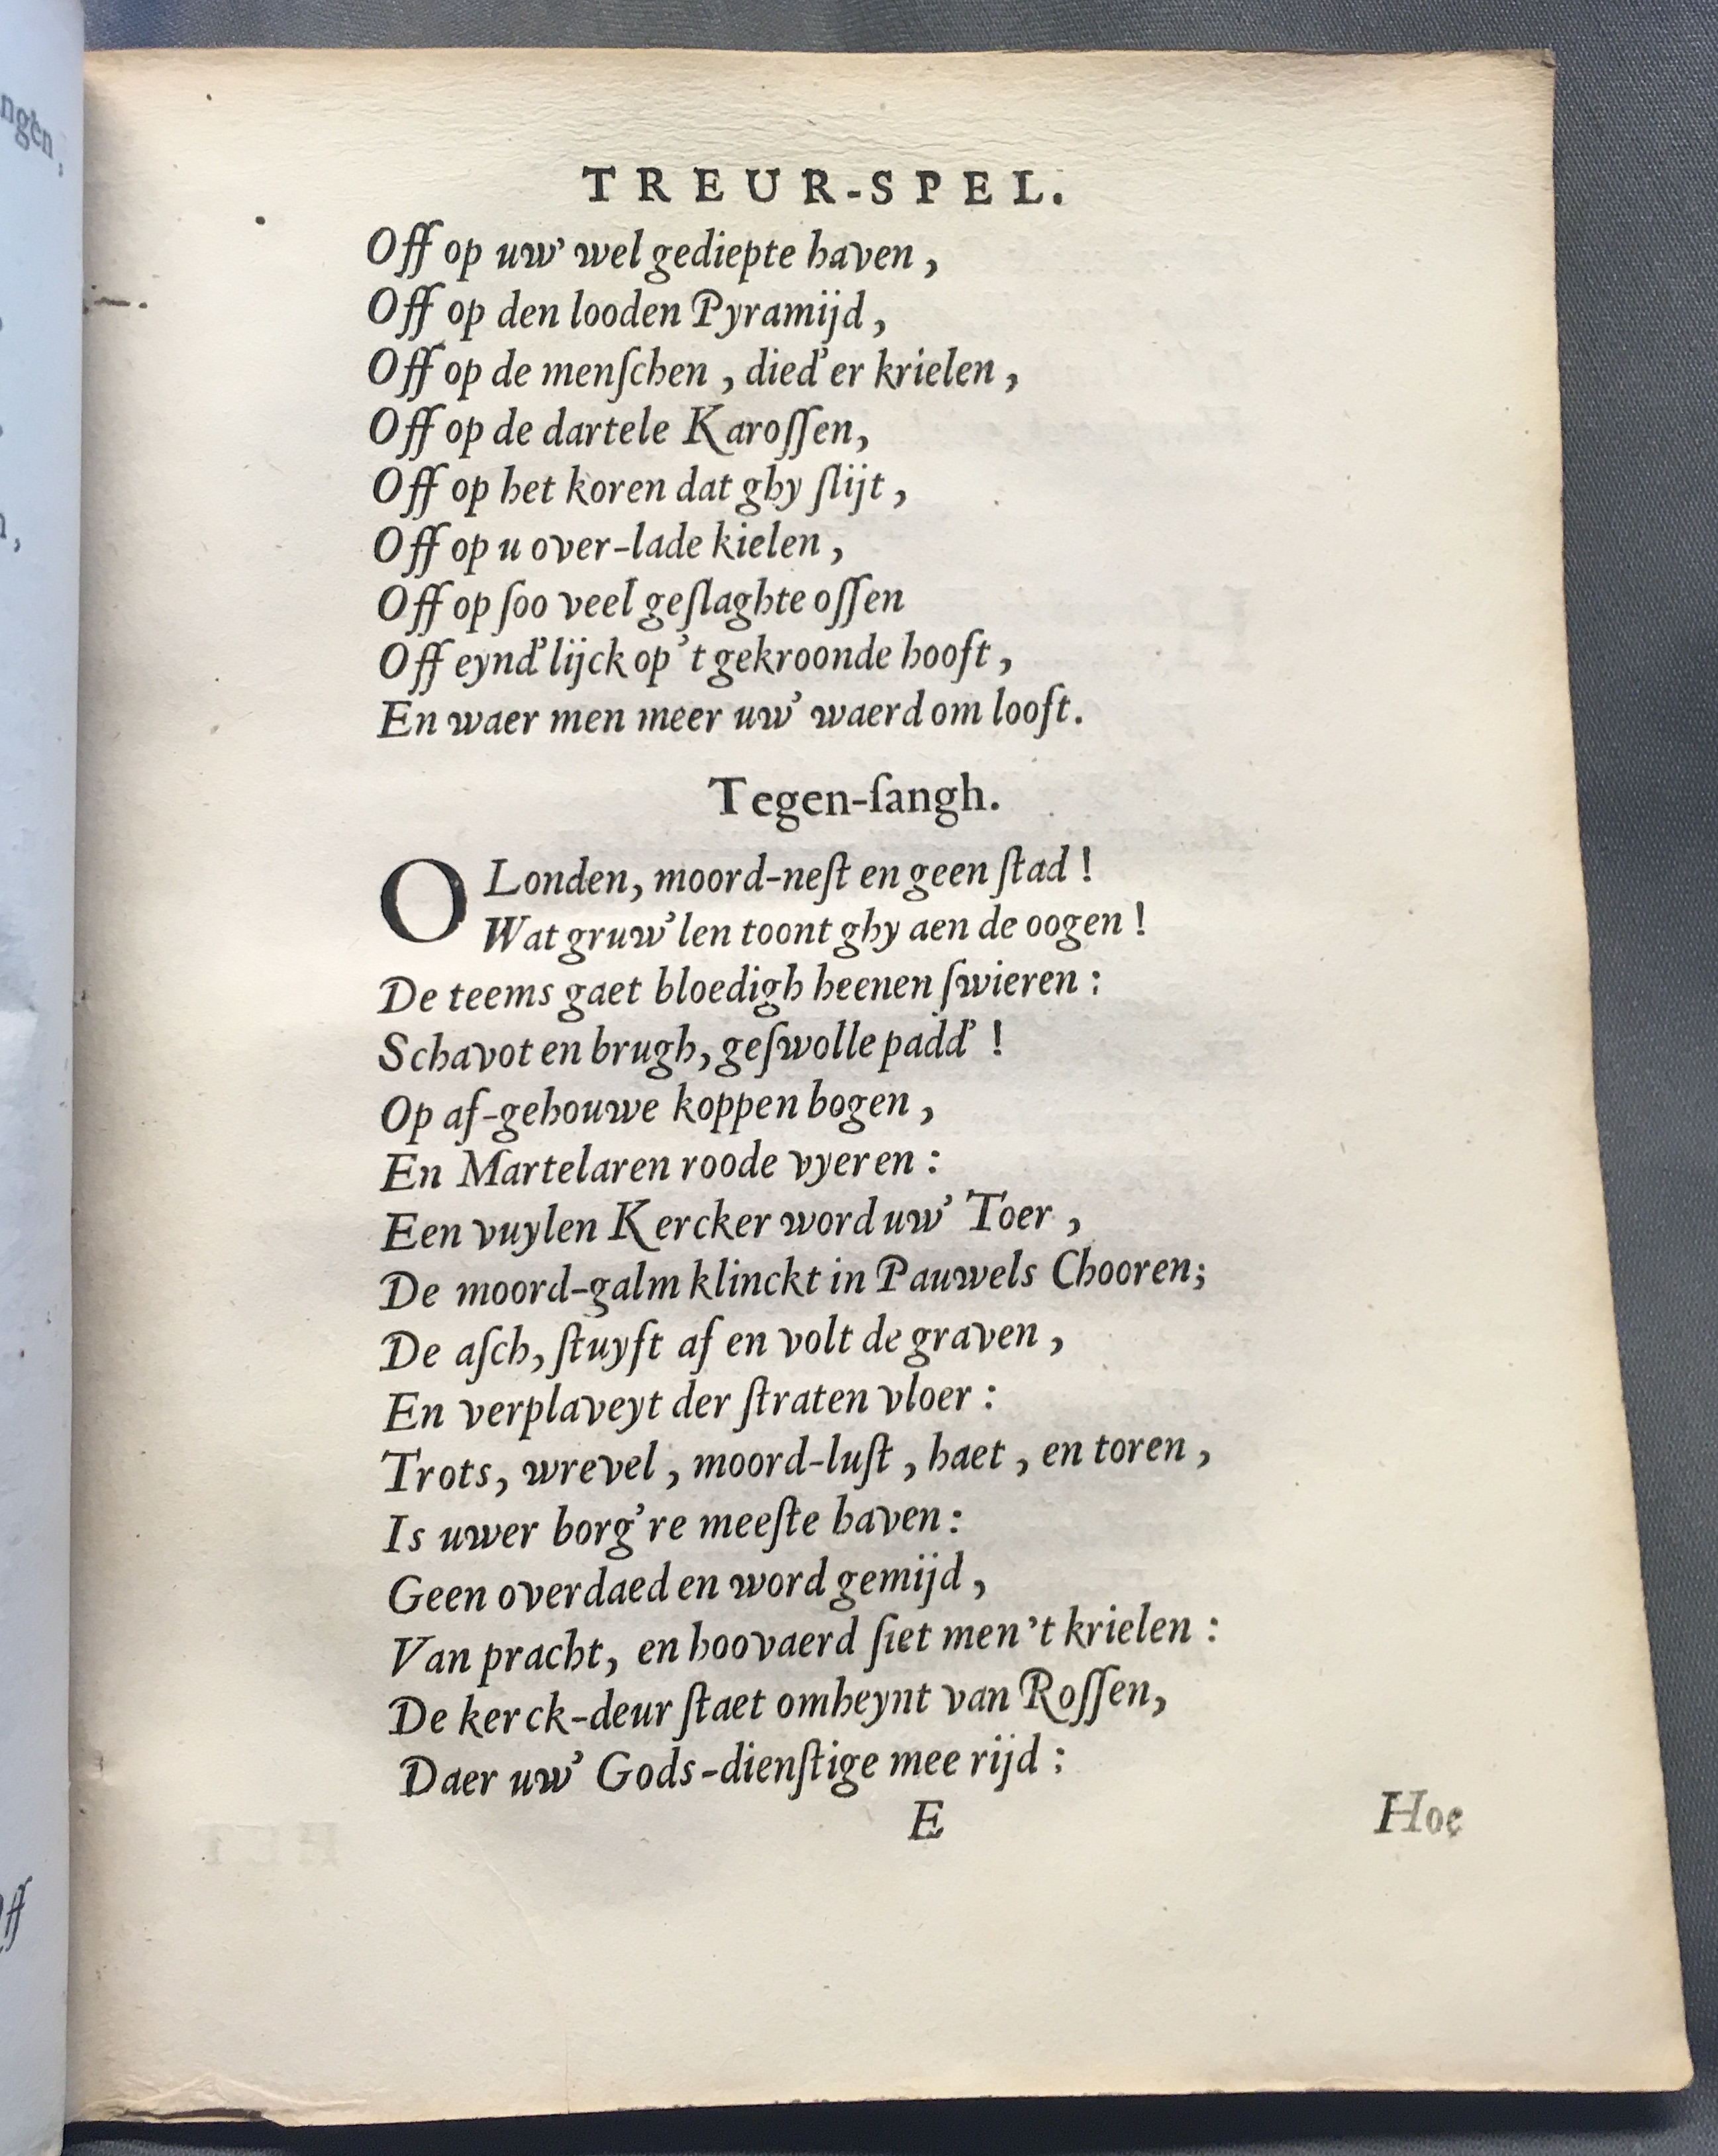 TREUR-SPEL.
Off op uw' wel gediepte haven,
Off op den looden Pyramijd,
Off op de menſchen, died'er krielen,
Off op de dartele Karoſſen,
Off op het koren dat ghy ſlijt,
Off op u over-lade kielen,
Off op ſoo veel geſlaghte oſſen
Off eynd'lijck op 't gekroonde hooft,
En waer men meer uw' waerd om looft.
Tegen-ſangh.
O Londen, moord-neſt en geen ſtad!
Wat gruw'len toont ghy aen de oogen!
De teems gaet bloedigh heenen ſwieren:
Schavot en brugh, geſwolle padd'!
Op af-gehouwe koppen bogen,
En Martelaren roode vyeren:
Een vuylen Kercker word uw' Toer,
De moord-galm klinckt in Pauwels Chooren;
De aſch, ſtuyft af en volt de graven,
En verplaveyt der ſtraten vloer:
Trots, wrevel, moord-luſt, haet, en toren,
Is uwer borg're meeſte haven:
Geen overdaed en word gemijd,
Van pracht, en hoovaerd ſiet men 't krielen:
De kerck-deur ſtaet omheynt van Roſſen,
Daer uw' Gods-dienſtige mee rijd:
E Hoe